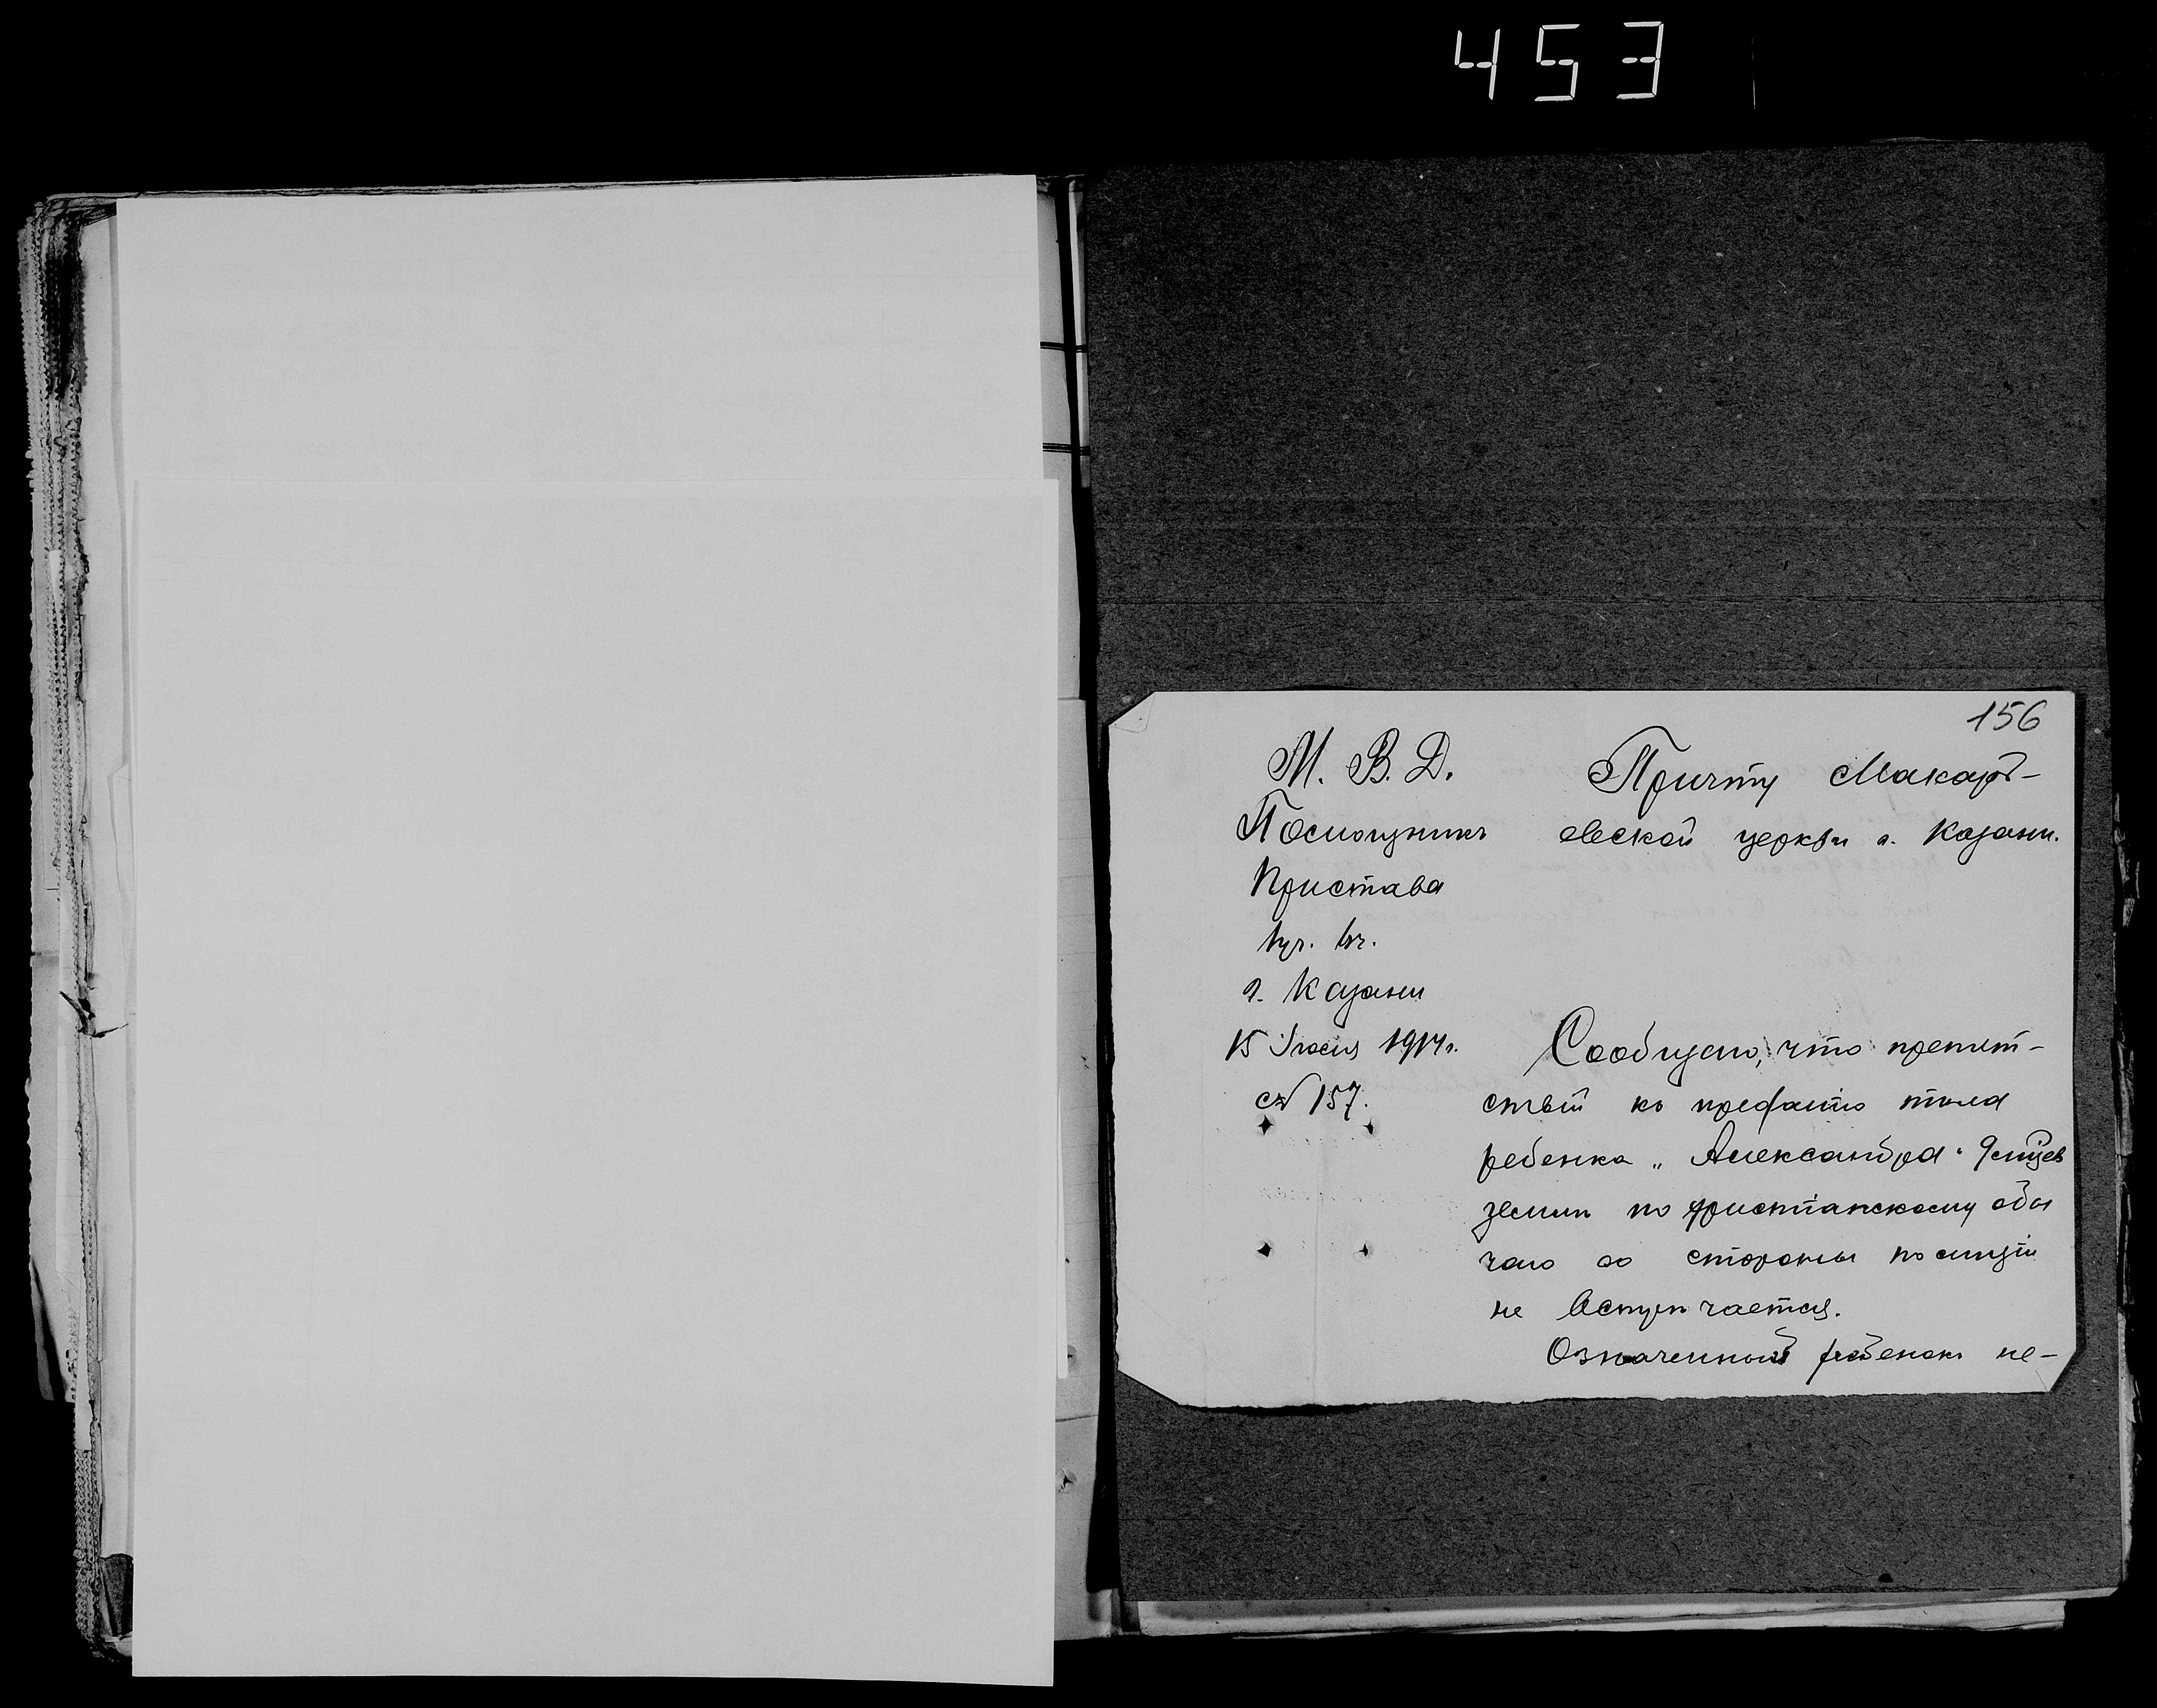 453
156
М. В. Д.
Помощникъ
Пристава
г. Казани
15 Іюня 1914 г.
№ 157.
Причту Макарь-
евской церкви г. Казани.
Сообщаю, что препят-
ствій къ преданію тѣла
ребенка „Александра"
землѣ по христіанскому обы
чаю со стороны полиціи
не встрѣчается.
Означенный ребенокъ не-